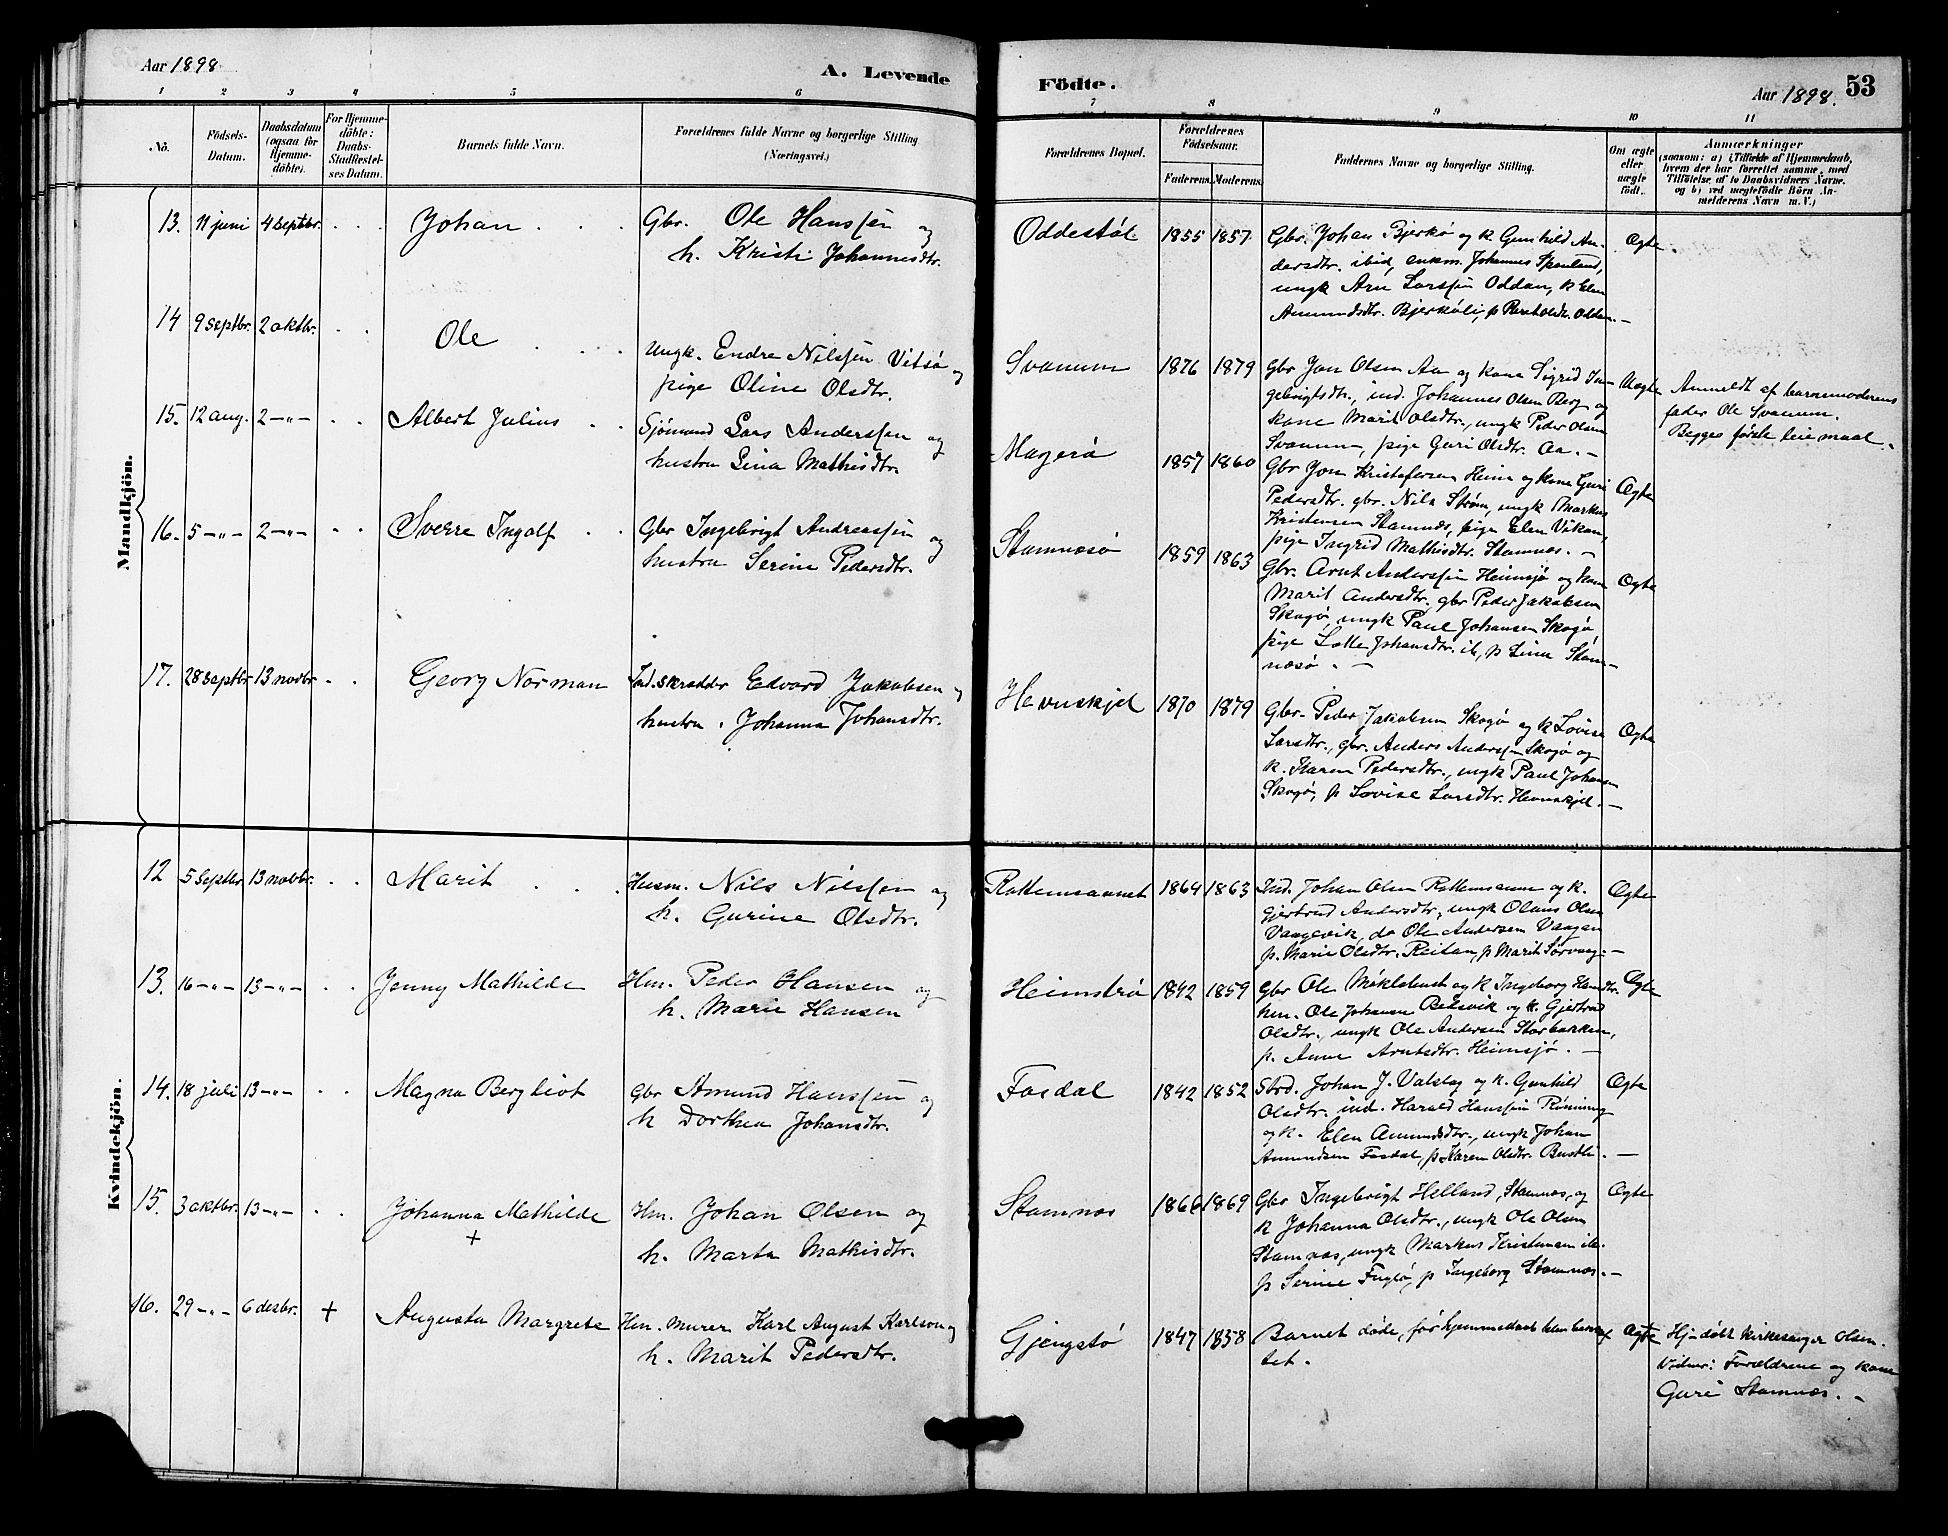 Aar 1898.
A. Levende
1 2 3 4 5 6
No.
Födsels-
Datum.
Daabsdatum
(ogsaa for
Hjemme-
döbte).
For Hjemme-
döbte:
Daabs-
Stadfæstel-
ses Datum.
Barnets fulde Navn.
Forældrenes fulde Navne og borgerlige Stilling
(Næringsvei.)
Mandkjön.
13. 11 juni 4 septbr. Johan Gbr. Ole Hanssen og
h. Kristi Johannesdtr.
14 9 septbr. 2 oktbr. Ole Ungk. Endre Nilssen Vitsø og
pige Oline Olsdtr.
15. 12 aug. 2 -"- Albert Julius Sjömand Lars Anderssen og
hustru Lina Mathisdtr.
16. 5 -"- 2 -"- Sverre Ingolf Gbr Ingebrigt Andreassen og
hustru Serine Pedersdtr.
17. 28 septbr 13 novbr. Georg Norman Ind. skrædder Edvard Jakobsen og
hustru Johanna Johansdtr.
Kvindekjön.
12 5 septbr 13 novbr. Marit Husm. Nils Nilssen og
h. Gurine Olsdtr.
13. 16 -"- 13 -"- Jenny Mathilde Hm. Peder Hansen og
h. Marie Hansen
14. 18 juli 13 -"- Magna Bergliot Gbr Amund Hanssen og
h Dorthea Johansdtr.
15. 3 oktbr. 13 -"- Johanna Mathilde Hm. Johan Olsen og
+
h. Marta Mathisdtr.
16. 29 -"- 6 desbr. + Augusta Margrete Hm. Murer Karl August Karlson og
h. Marit Pedersdtr.
Födte.
Aar 1898. 53
7 8 9 10 11
Forældrenes Bopæl.
Forældrenes
Födselsaar.
Faderens. Moderens.
Faddernes Navne og borgerlige Stilling.
Om ægte
eller
uægte
födt.
Anmærkninger
(saasom: a) i Tilfælde af Hjemmedaab,
hvem der har forrettet samme, med
Tilföielse af to Daabsvidners Navne,
og b) ved uægtefödte Börn An-
melderens Navn m. V.)
Oddestøl 1855 1857 Gbr. Johan Bjerkø og k Gunhild An- Ægte
dersdtr. ibid, enkm. Johannes
ungk Arn Larssen Oddan, k Elen
Amundsdtr. Bjerkøli, p Olsdtr. Oddan. -
Svanum 1876 1879 Gbr Jon Olsen Aa og kone Sigrid In- Uægte Anmeldt af barnemoderens
gebrigtsdtr., ind. Johannes Olsen Berg og fader Ole Svanum.
kone Marit Olsdtr., ungk Peder Olsen Begges første leiemaal.
Svanum, pige Guri Olsdtr. Aa. -
Magerø 1857 1860 Gbr Jon Kristofersen Heim og kone Guri Ægte
Pedersdtr. gbr. Nils Strøm, ungk Markus
Kristensen Stamnæs, pige Elen Vikan,
pige Ingrid Mathisdtr. Stamnæs. -
Stamnæsø 1859 1863 Gbr. Arnt Anderssen Heimsjø og kone Ægte
Marit Andersdtr., gbr Peder Jakobsen
Skogø, ungk Paul Johansen Skogø
pige Lotte Johansdtr. ib, p Lina Stam-
næsø. -
Hevnskjel 1870 1879 Gbr. Peder Jakobsen Skogø og k Lovise Ægte
Larsdtr., gbr. Anders Anderssen Skogø og
k. Karen Pedersdtr., ungk Paul Johansen
Skogø, p Lovise Larsdtr. Hevnskjel. -
Rottemsaunet 1864 1863 Ind. Johan Olsen Rottemsaune og k. Ægte
Gjertrud Andersdtr., ungk Olaus Olsen
Vaagevik, do Ole Andersen Vaagan
p. Marie Olsdtr. Reitan, p Marit Sørvaag. -
Heimstrø 1842 1859 Gbr Ole Møklebust og k Ingeborg Hansdtr. Ægte
hm. Ole Johansen Belsvik og k. Gjertrud
Olsdtr., ungk Ole Andersen Storbakken,
p. Anne Arntsdtr. Heimsjø. -
Fosdal 1842 1852 Strd. Johan J. Valslag og k. Gunhild Ægte
Olsdtr. ind. Harald Hanssen Rønning
og k. Elen Amundsdtr., ungk Johan
Amundsen Fosdal, p Karen Olsdtr. Bustli. -
Stamnæs 1866 1869 Gbr Ingebrigt Helland, Stamnæs, og Ægte
k Johanna Olsdtr., ungk Ole Olsen
Stamnæs, ungk Markus Kristensen ib.
p Serine Fuglø, p Ingeborg Stamnæs. -
Gjengstø 1847 1858 Barnet døde, før hjemmedaab blev Ægte Hj-døbt kirkesanger Olsen.
tet. Vidner: Forældrene og kone
Guri Stamnæs. -